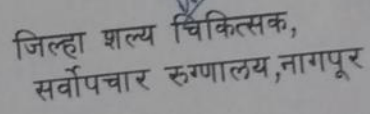 जिल्हा शल्य चिकित्सक,
सर्वोपचार रुग्णालय,नागपूर